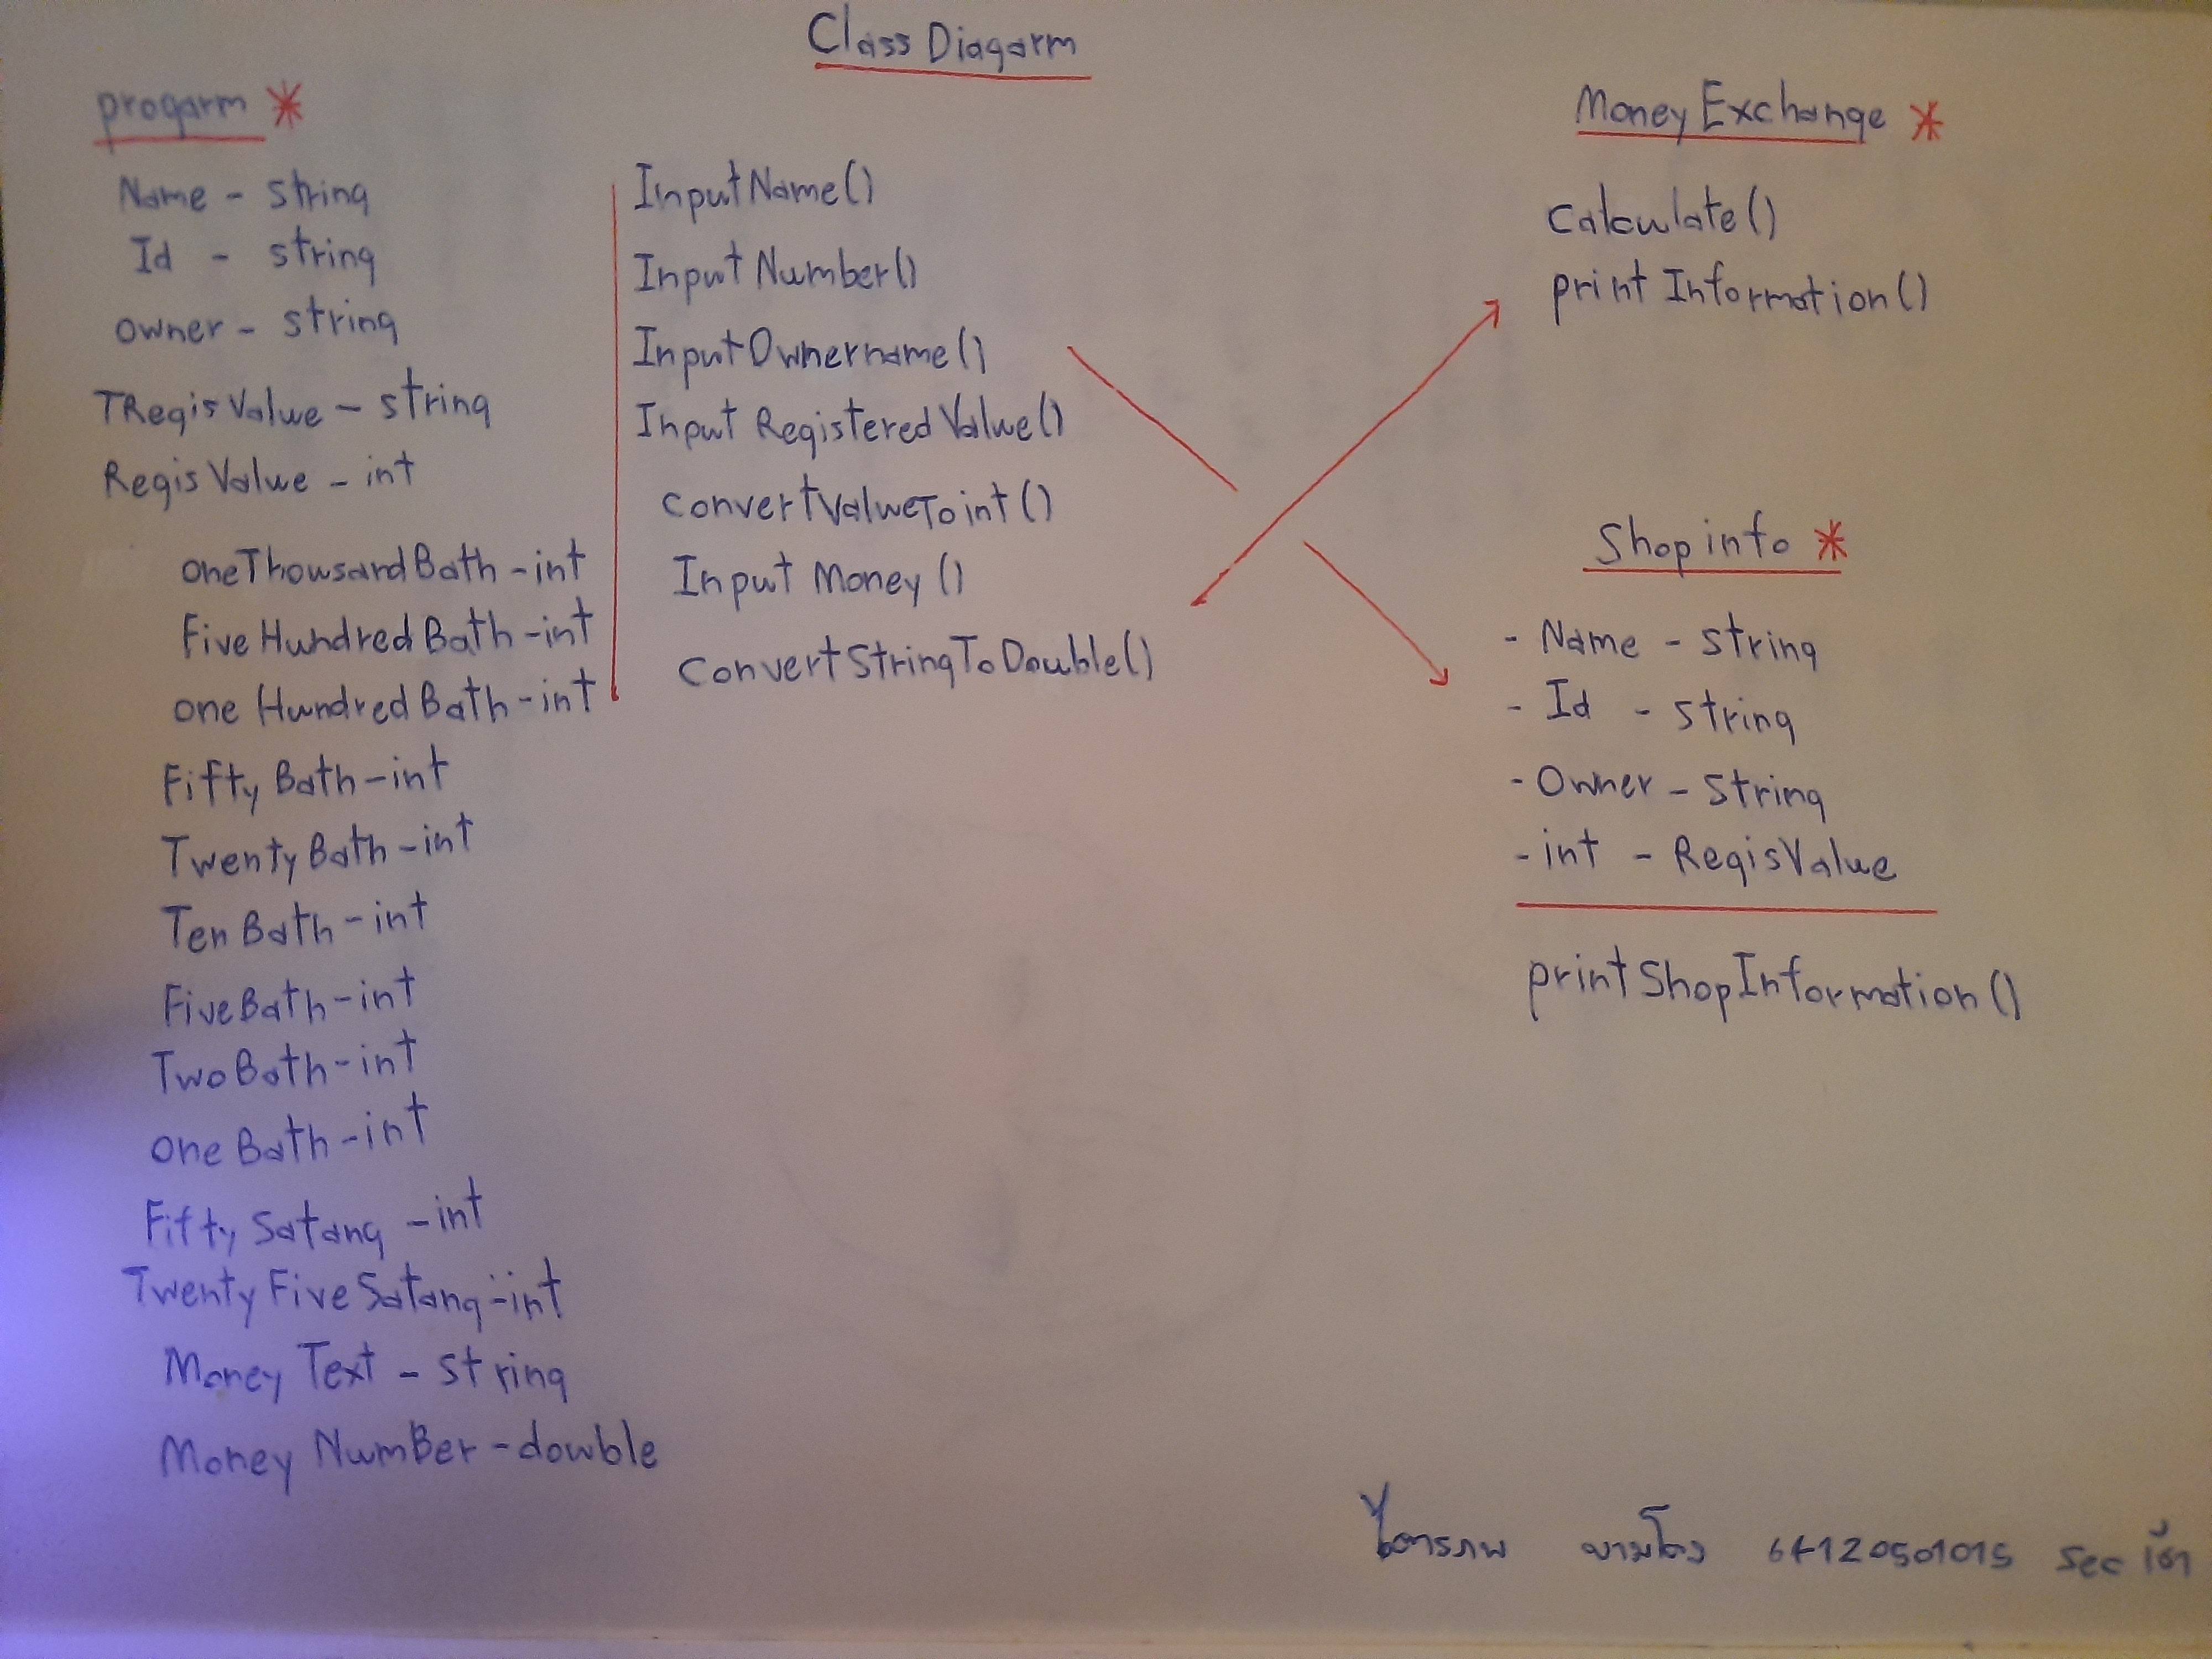 Class Diagarm
progarm *
Name - string
Id - string
owner - string
TRegisValue - string
RegisValue - int
oneThousandBath - int
FiveHundredBath - int
one HundredBath - int
Fifty Bath - int
TwentyBath - int
TenBath - int
FiveBath - int
TwoBath - int
one Bath - int
Fifty Satang - int
Twenty FiveSatang - int
Money Text - string
Money NumBer - double
InputName()
Input Number()
InputOwnername()
Input RegisteredValue()
convertValueToint()
Input Money()
convertStringToDouble()
Money Exchange *
calculate()
print Information()
Shop info *
- Name - string
- Id - string
- Owner - string
- int - RegisValue
printShopInformation()
ไตรภพ 64120501015 sec เช้า